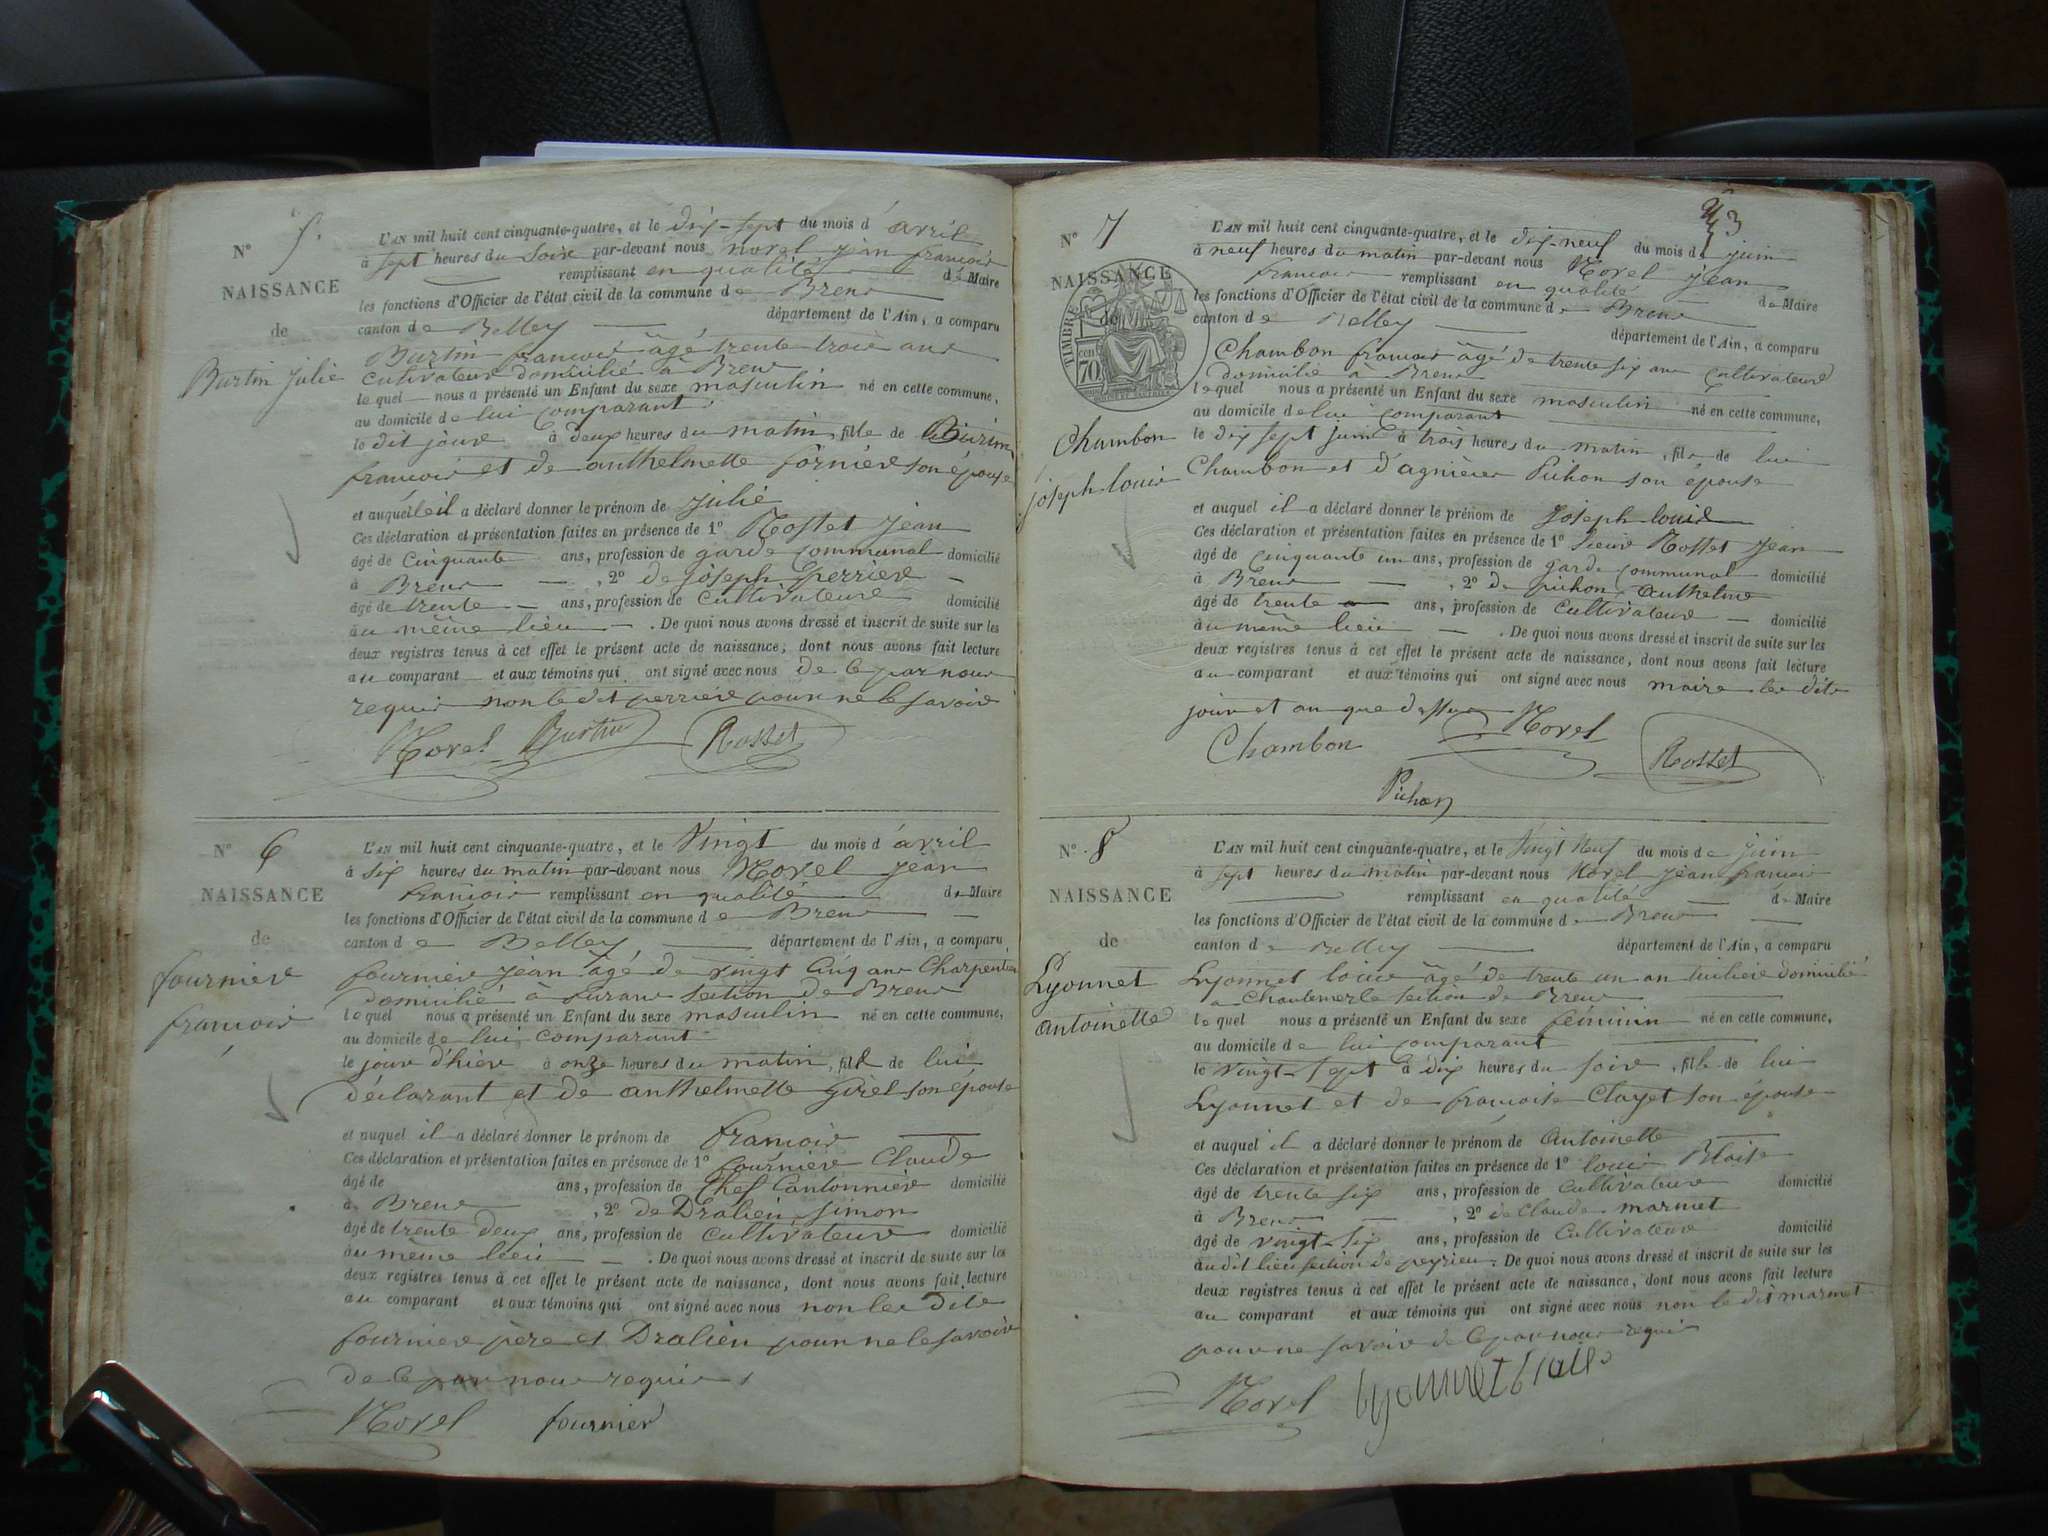 N° 5.
NAISSANCE
de
Burtin Julie
L'AN mil huit cent cinquante-quatre, et le dix-sept du mois d'avril
à sept heures du soir par-devant nous morel jean francois
remplissant en qualité de Maire
les fonctions d'Officier de l'état civil de la commune de Brens
canton de Belley département de l'Ain, a comparu
Burtin francois âgé trente trois ans
cultivateur domicilié à Brens
lequel nous a présenté un Enfant du sexe masculin né en cette commune,
au domicile de lui comparant
le dit jour à deux heures du matin, fille de Burtin
francois et de anthelmette fornier son épouse
et auquel il a déclaré donner le prénom de julie
Ces déclaration et présentation faites en présence de 1° Rosset Jean
âgé de cinquante ans, profession de garde communal domicilié
à Brens , 2° de joseph perrier
âgé de trente ans, profession de cultivateur domicilié
au même lieu . De quoi nous avons dressé et inscrit de suite sur les
deux registres tenus à cet effet le présent acte de naissance; dont nous avons fait lecture
au comparant et aux témoins qui ont signé avec nous de ce par nous
requis non le dit perrier pour ne le savoir
Morel Burtin Rosset
N° 6
NAISSANCE
de
fournier
francois
L'AN mil huit cent cinquante-quatre, et le Vingt du mois d'avril
à six heures du matin par-devant nous Morel Jean
francois remplissant en qualité de Maire
les fonctions d'Officier de l'état civil de la commune de Brens
canton de Belley département de l'Ain, a comparu
fournier jean âgé de vingt cinq ans Charpentier
domicilié à section de Brens
lequel nous a présenté un Enfant du sexe masculin né en cette commune,
au domicile de lui comparant
le jour d'hier à onze heures du matin, fils de lui
déclarant et de anthelmette Girel son épouse
et auquel il a déclaré donner le prénom de francois
Ces déclaration et présentation faites en présence de 1° fournier Claude
âgé de ans, profession de Chef Cantonnier domicilié
à Brens , 2° de Dralien simon
âgé de trente deux ans, profession de cultivateur domicilié
au même lieu . De quoi nous avons dressé et inscrit de suite sur les
deux registres tenus à cet effet le présent acte de naissance, dont nous avons fait lecture
au comparant et aux témoins qui ont signé avec nous non les dits
fournier père et Dralien pour ne le savoir
de ce par nous requis
Morel fournier
23
N° 7
NAISSANCE
de
TIMBRE
70
Chambon
joseph louis
L'AN mil huit cent cinquante-quatre, et le dix-neuf du mois de juin
à neuf heures du matin par-devant nous Morel Jean
francois remplissant en qualité de Maire
les fonctions d'Officier de l'état civil de la commune de Brens
canton de Belley département de l'Ain, a comparu
Chambon francois âgé de trente six ans cultivateur
domicilié à Brens
lequel nous a présenté un Enfant du sexe masculin né en cette commune,
au domicile de lui comparant
le dix sept juin à trois heures du matin, fils de lui
Chambon et d'agnièes Pichon son épouse
et auquel il a déclaré donner le prénom de Joseph louis
Ces déclaration et présentation faites en présence de 1° sieur Rosset Jean
âgé de cinquante un ans, profession de garde communal domicilié
à Brens , 2° de pichon anthelme
âgé de trente ans, profession de cultivateur domicilié
au même lieu . De quoi nous avons dressé et inscrit de suite sur les
deux registres tenus à cet effet le présent acte de naissance, dont nous avons fait lecture
au comparant et aux témoins qui ont signé avec nous maire les dits
jour et an que dessus Morel
Chambon Rosset
Pichon
N° 8
NAISSANCE
de
Lyonnet
antoinette
L'AN mil huit cent cinquante-quatre, et le Vingt Neuf du mois de juin
à sept heures du matin par-devant nous Morel Jean francois
remplissant en qualité de Maire
les fonctions d'Officier de l'état civil de la commune de Brens
canton de Belley département de l'Ain, a comparu
Lyonnet louis âgé de trente un an tuilier domicilié
a Chantemerle section de Brens
lequel nous a présenté un Enfant du sexe féminin né en cette commune,
au domicile de lui comparant
le Vingt-sept à dix heures du soir, fille de lui
Lyonnet et de françoise Clayet son épouse
et auquel il a déclaré donner le prénom de antoinette
Ces déclaration et présentation faites en présence de 1° louis Blaise
âgé de trente six ans, profession de cultivateur domicilié
à Brens , 2° de Claude marmet
âgé de vingt-six ans, profession de Cultivateur domicilié
au dit lieu section de peyrieu. De quoi nous avons dressé et inscrit de suite sur les
deux registres tenus à cet effet le présent acte de naissance, dont nous avons fait lecture
au comparant et aux témoins qui ont signé avec nous non le dit marmet
pour ne savoir de ce par nous requis
Morel lyonnet